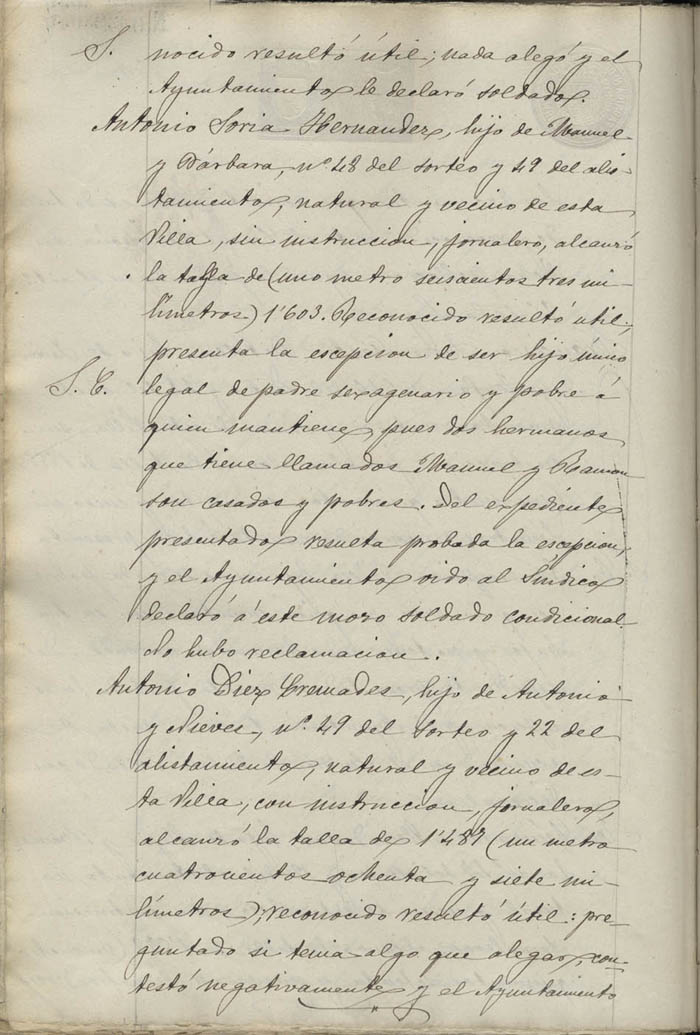 S. nocido resultó útil; nada alegó y el
Ayuntamiento le declaró soldado.
Antonio Soria Hernandez, hijo de Manuel
y Bárbara, nº 48 del sorteo y 49 del alis-
tamiento, natural y vecino de esta
Villa, sin instruccion, jornalero, alcanzó
la talla de (uno metro seiscientos tres mi-
límetros) 1'603. Reconocido resultó útil;
presenta la escepcion de ser hijo único
S. C. legal de padre sexagenario y pobre á
quien mantiene, pues dos hermanos
que tiene llamados Manuel y Ramon
son casados y pobres. Del expediente
presentado resulta probada la escepcion,
y el Ayuntamiento oido al Síndico
declaró á este mozo soldado condicional.
No hubo reclamacion.
Antonio Diez Cremades, hijo de Antonio
y Nieves, nº. 49 del sorteo y 22 del
alistamiento, natural y vecino de es-
ta Villa, con instruccion, jornalero,
alcanzó la talla de 1'487 (un metro
cuatrocientos ochenta y siete mi-
límetros); reconocido resultó útil: pre-
guntado si tenia algo que alegar, con-
testó negativamente y el Ayuntamiento